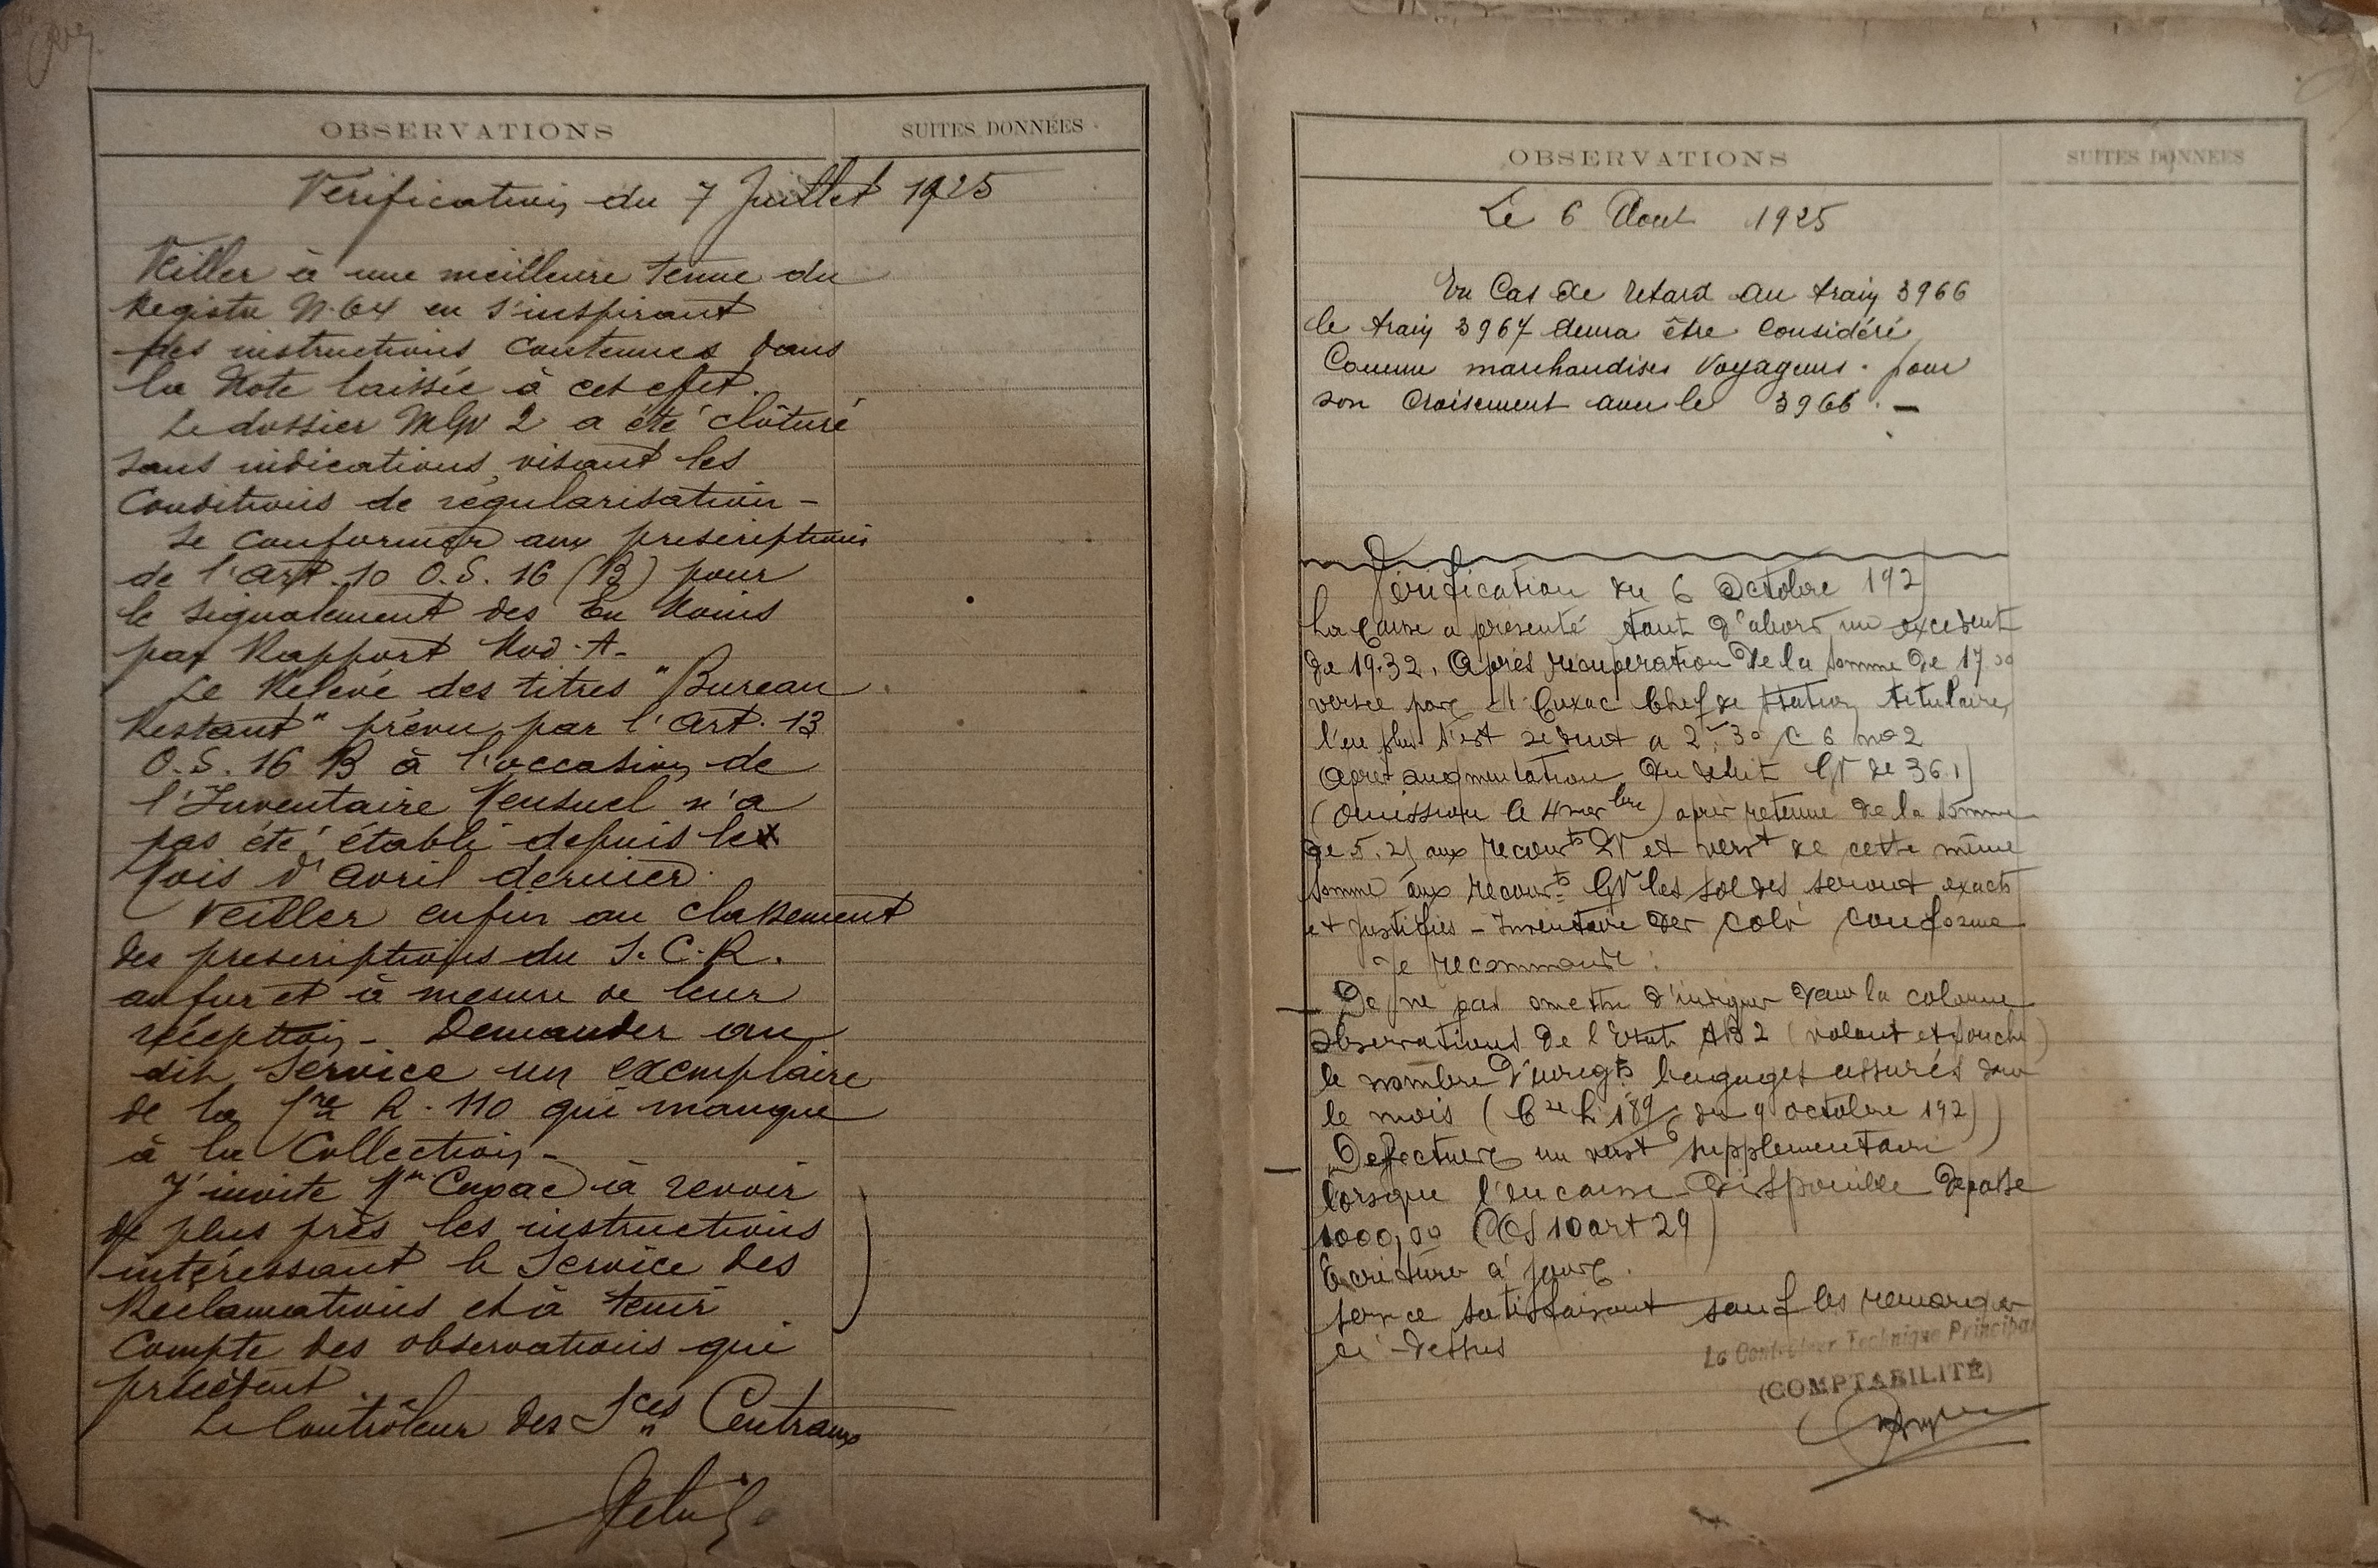 OBSERVATIONS
SUITES DONNÉES
Vérification du 7 Juillet 1925
Veiller à une meilleure tenue du
Registre N. 64 en s'inspirant
des instructions contenues dans
la Note laissée à cet effet.
Le dossier 2 a été clôturé
sans indications visant les
Conditions de régularisation -
Se conformer aux prescriptions
de l'Art. 10 O.S. 16 (B) pour
le signalement des En Moins
par Rapport Mod. A-
Le Relevé des titres "Bureau
Restant" prévu par l'Art. 13
O.S. 16 B à l'occasion de
l'Inventaire Mensuel n'a
pas été établi depuis le
Mois d'Avril dernier.
Veiller enfin au classement
des prescriptions du S.C.R.
au fur et à mesure de leur
réception - Demander au
dit Service un exemplaire
de la R. 110 qui manque
à la Collection -
J'invite Mr Cuxac à revoir
de plus près les instructions
intéressant le Service des
Réclamations et à tenir
Compte des observations qui
précèdent.
Le Contrôleur des Sces Centraux
OBSERVATIONS
SUITES DONNÉES
Le 6 Aout 1925
En Cas de retard au train 3966
le train 3967 devra être Considéré
Comme marchandises Voyageurs. pour
son Croisement avec le 3966. -
Vérification du 6 Octobre 192
La Caisse a présenté tout d'abord un excédent
de 19.32. Après récupération de la somme de 17.00
versée par Mr Cuxac Chef de Station titulaire,
l'en plus s'est réduit a 2
Après augmentation du débit GV de 36.
(Omission le 4 ) après retenue de la somme
de 5.2 aux recouvts PV et verst de cette même
somme aux recouvts GV les soldes seront exacts
et justifiés - Inventaire des colis conforme
Je recommande :
- De ne pas omettre d'indiquer dans la colonne
Observations de l'Etat AB 2 (volant et souche)
le nombre d'enregts bagages assurés dans
le mois ( du 9 octobre 192 )
- D'effectuer un verst supplémentaire
lorsque l'encaisse disponible dépasse
1000,00 (OS 10 art 29)
Ecritures à jour.
service satisfaisant sauf les remarques
ci-dessus
Le Contrôleur Technique Principal
(COMPTABILITÉ)